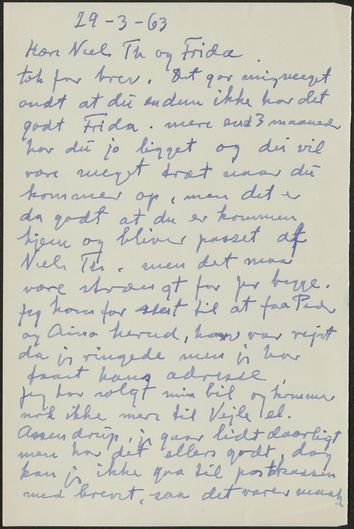 29-3-63
Kære Niels Th og Frida
tak for brev. Det gør mig meget
ondt at du endnu ikke har det
godt Frida. mere end 3 maaneder
har du jo ligget og du vil
være meget træt naar du
kommer op, men det er
da godt at du er kommen
hjem og bliver passet af
Niels Th. men det maa
være strængt for jer begge.
Jeg kom for sent til at faa Peder
og Aina herud, han var rejst
da jeg ringede men jeg har
faaet hans adresse.
Jeg har solgt min bil og kommer
nok ikke mere til Vejle el.
Assendrup, jeg gaar lidt daarligt
men har det ellers godt, dog
kan jeg ikke gaa til postkassen
med brevet, saa det varer maaske